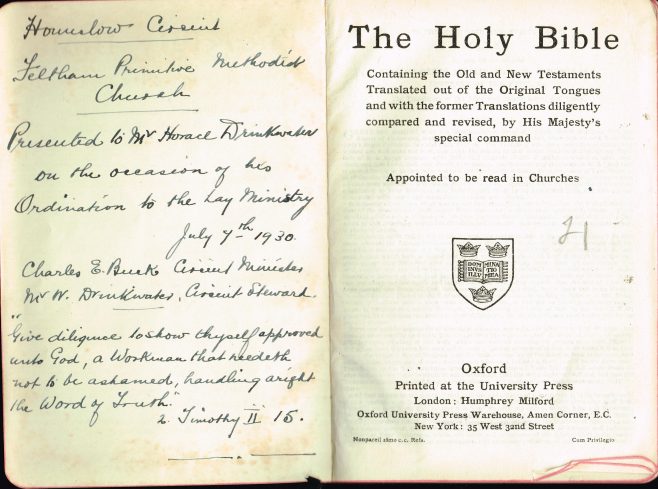 Hounslow Circuit
Feltham Primitive Methodist
Church
Presented to Mr Horace Drinkwater
on the occasion of his
Ordination to the Lay Ministry
July 7th 1930.
Charles E. Buck Circuit Minister
Mr W. Drinkwater, Circuit Steward.
"Give diligence to show thyself approved
unto God, a Workman that needeth
not to be ashamed, handling aright
the Word of Truth."
2. Timothy II 15.
The Holy Bible
Containing the Old and New Testaments
Translated out of the Original Tongues
and with the former Translations diligently
compared and revised, by His Majesty's
special command
Appointed to be read in Churches
DOMI NINA
NVS TIO
ILLV MEA
Oxford
Printed at the University Press
London: Humphrey Milford
Oxford University Press Warehouse, Amen Corner, E.C.
New York: 35 West 32nd Street
Nonpareil 16mo c.c. Refs.
Cum Privilegio